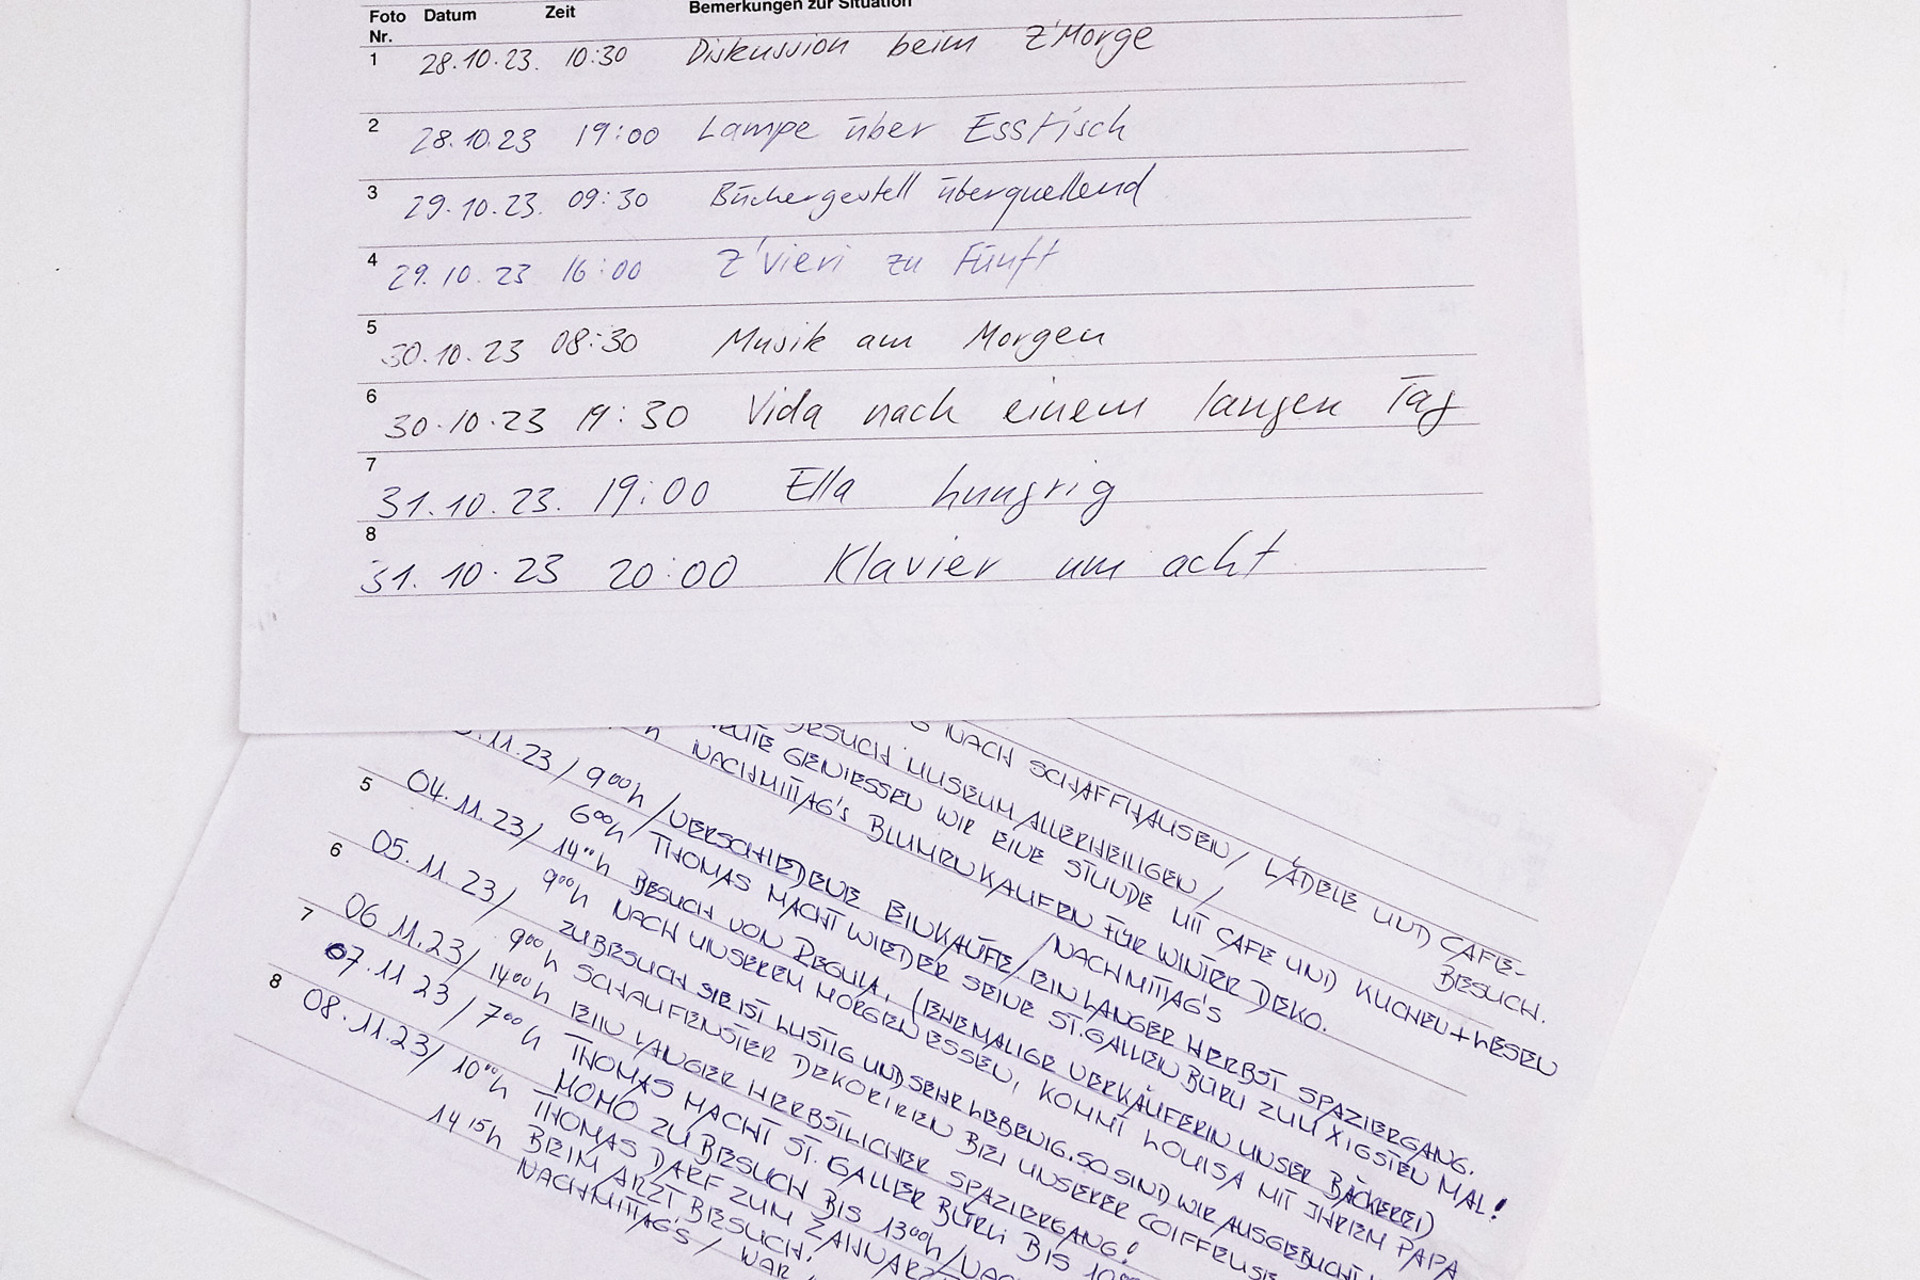 Foto Nr. Datum Zeit Bemerkungen zur Situation
1 28.10.23. 10:30 Diskussion beim Z'Morge
2 28.10.23 19:00 Lampe über Esstisch
3 29.10.23. 09:30 Büchergestell überquellend
4 29.10.23 16:00 Z'vieri zu Fünft
5 30.10.23 08:30 Musik am Morgen
6 30.10.23 19:30 Vida nach einem langen Tag
7 31.10.23. 19:00 Ella hungrig
8 31.10.23 20:00 Klavier um acht
NACH SCHAFFHAUSEN / LÄDELE UND CAFE-
BESUCH.
BESUCH MUSEUM ALLERHEILIGEN /
GENIESSEN WIR EINE STUNDE MIT CAFE UND KUCHEN + LESEN
NACHMITTAG'S BLUMEN KAUFEN FÜR WINTER DEKO.
.11.23 / 9⁰⁰h / VERSCHIEDENE EINKÄUFE / NACHMITTAG'S
EIN LANGER HERBST SPAZIERGANG.
5 04.11.23 / 6⁰⁰h THOMAS MACHT WIEDER SEINE ST.GALLEN BÜRLI ZUM XIGSTEN MAL!
14⁰⁰h BESUCH VON REGULA, (EHEMALIGE VERKÄUFERIN UNSER BÄCKEREI)
6 05.11.23 / 9⁰⁰h NACH UNSEREM MORGENESSEN, KOMMT LOUISA MIT IHREM PAPA
ZU BESUCH SIE IST LUSTIG UND SEHR LEBENIG. SO SIND WIR AUSGEBUCHT
7 06 11.23 / 9⁰⁰h SCHAUFENSTER DEKORIREN BEI UNSERER COIFFEUSE
14⁰⁰h EIN LANGER HERBSTLICHER SPAZIERGANG!
07.11 23 / 7⁰⁰h THOMAS MACHT ST. GALLER BÜRLI BIS 10
MOMO ZU BESUCH BIS 13⁰⁰h /
8 08.11.23 / 10⁰⁰h THOMAS DARF ZUM ZAHNARZ
14 15h BEIM ARZT BESUCH!
NACHMITTAG'S / WAR